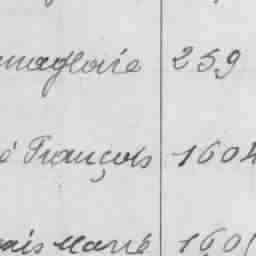 maglaire 259
é François 1604
çais Marie 160